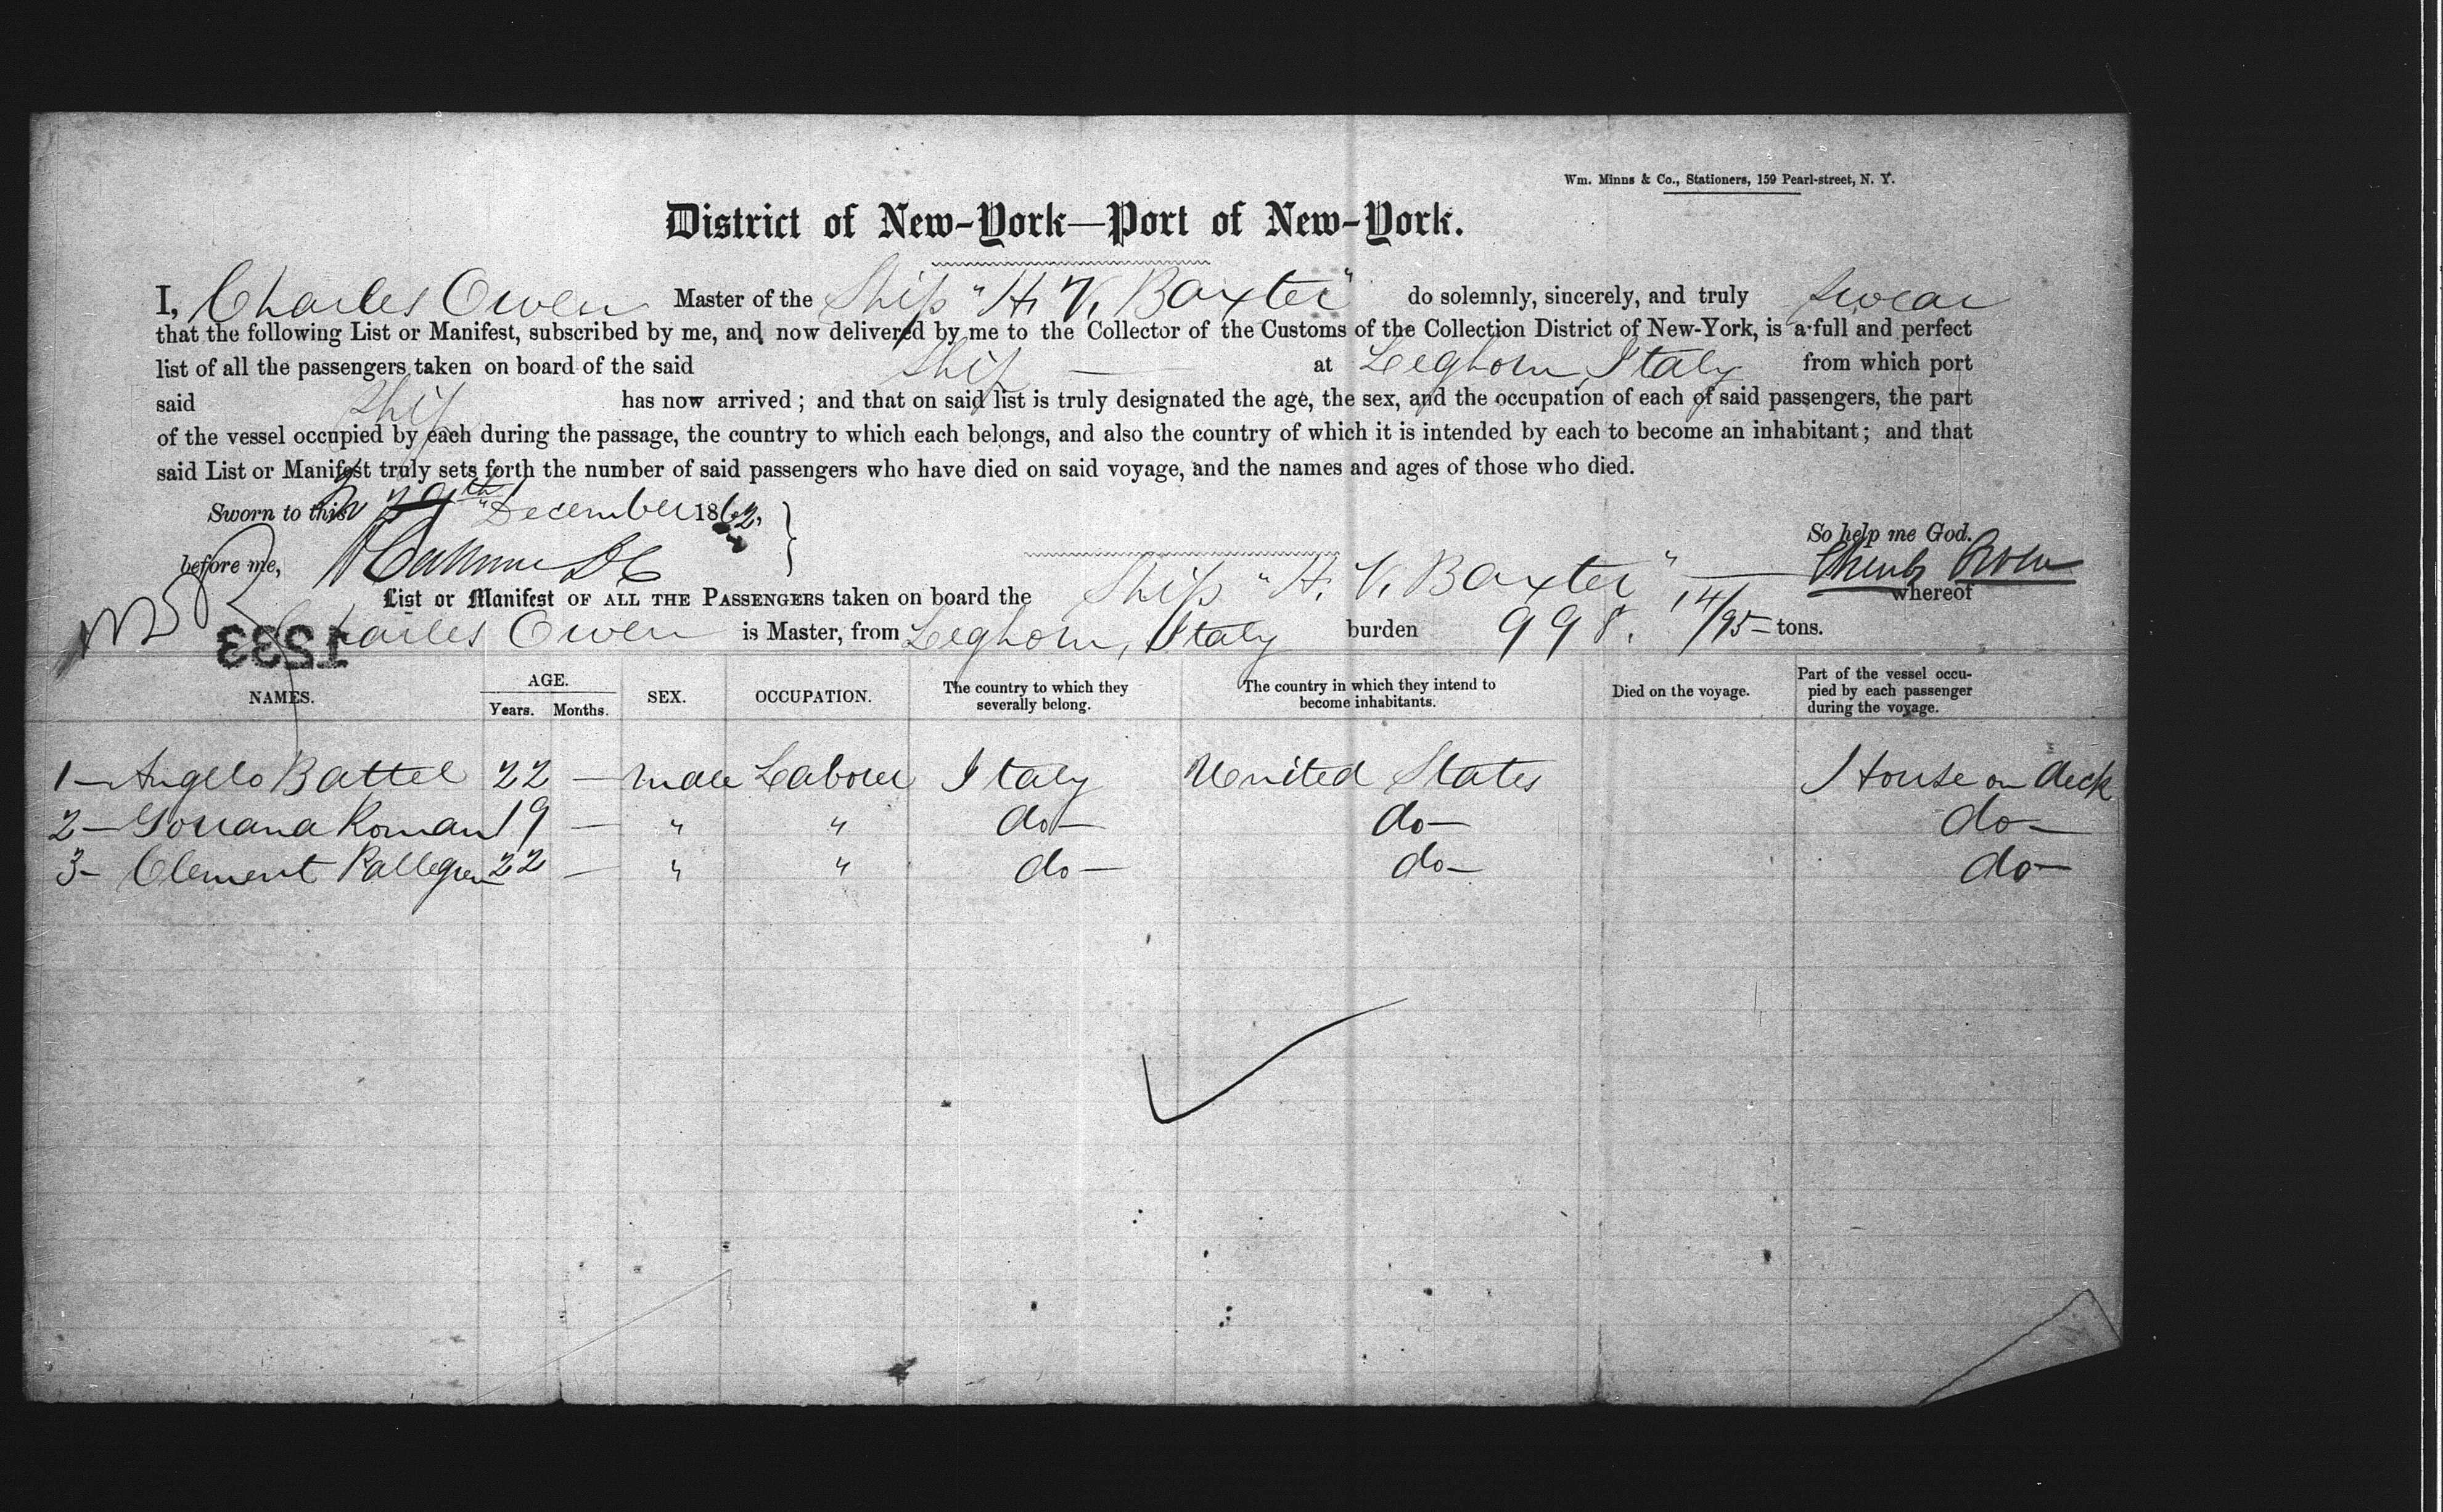 Wm. Minns & Co., Stationers, 159 Pearl-street, N. Y.
District of New-York—Port of New-York.
I, Charles Owen Master of the Ship "H. V. Baxter" do solemnly, sincerely, and truly swear
that the following List or Manifest, subscribed by me, and now delivered by me to the Collector of the Customs of the Collection District of New-York, is a full and perfect
list of all the passengers taken on board of the said Ship — at Leghorn, Italy from which port
said Ship has now arrived; and that on said list is truly designated the age, the sex, and the occupation of each of said passengers, the part
of the vessel occupied by each during the passage, the country to which each belongs, and also the country of which it is intended by each to become an inhabitant; and that
said List or Manifest truly sets forth the number of said passengers who have died on said voyage, and the names and ages of those who died.
Sworn to this December 1862
So help me God.
before me,
Charles Owen
List or Manifest OF ALL THE PASSENGERS taken on board the Ship "H. V. Baxter" — whereof
Charles Owen is Master, from Leghorn, Italy burden 998. 14/95 — tons.
1533
NAMES. AGE. Years. Months. SEX. OCCUPATION. The country to which they severally belong. The country in which they intend to become inhabitants. Died on the voyage. Part of the vessel occu-pied by each passenger during the voyage.
1— Angelo Battel 22 — male Labourer Italy United States House on deck
2— Roman 19 — " " do— do— do—
3— Clement 22 — " " do— do— do—